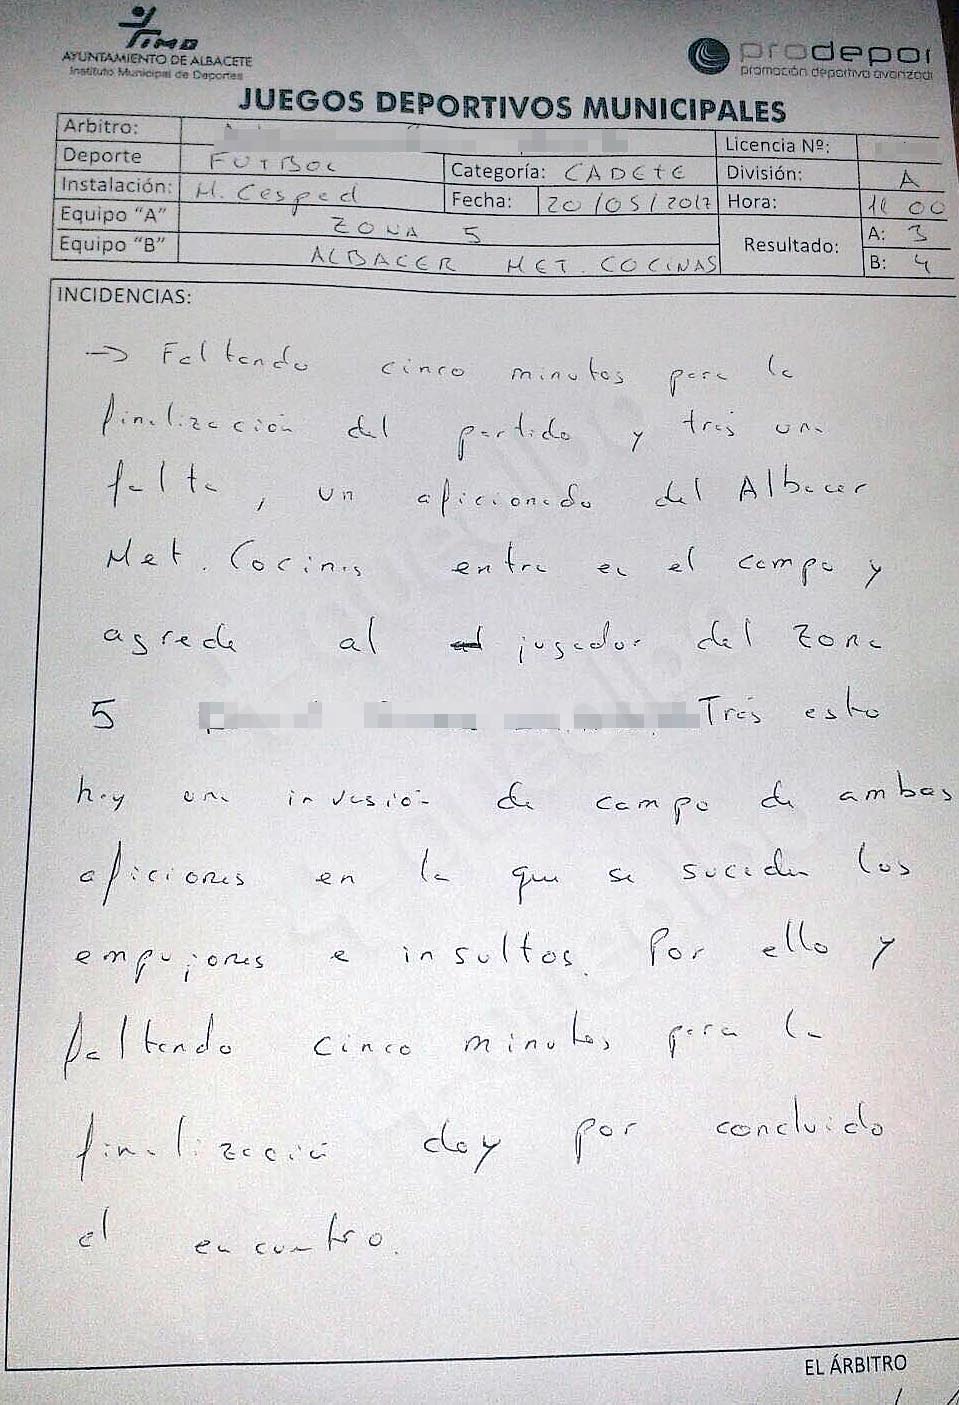 IMD
AYUNTAMIENTO DE ALBACETE
Instituto Municipal de Deportes
prodepor
promoción deportiva avanzad
JUEGOS DEPORTIVOS MUNICIPALES
Arbitro:
Licencia Nº:
Deporte FUTBOL Categoría: CADETE División: A
Instalación: M. Cesped Fecha: 20/05/2017 Hora: 00
Equipo "A" ZONA 5 Resultado: A: 3
Equipo "B" ALBACER MET. COCINAS B: 4
INCIDENCIAS:
→ Faltando cinco minutos para la
finalización del partido y tras una
falta, un aficionado del Albacer
Met. Cocinas entra en el campo y
agrede al jugador del Zona
5 Trás esto
hay una invasión de campo de ambas
aficiones en la que se suceden los
empujones e insultos. Por ello y
faltando cinco minutos para la
finalización doy por concluido
el encuentro.
EL ÁRBITRO